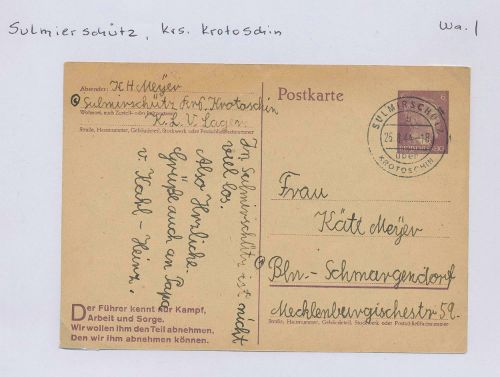 Sulmierschütz, Krs. Krotoschin
Wa. 1
Absender: KH Meyer
Sulmirschütz Krs. Krotoschin
K.L.V. Lager
Straße, Hausnummer, Gebäudeteil, Stockwerk oder Postschließfachnummer
Postkarte
6
SULMIERSCHÜTZ
über
KROTOSCHIN
Frau
Käti Meyer
Bln. - Schmargendorf
Mecklenburgischestr. 59.
Straße, Hausnummer, Gebäudeteil, Stockwerk oder Postschließfachnummer
In Sulmirschütz ist nicht
viel los.
Also Herzliche
Grüße auch an Papa
v. Karl - Heinz.
Der Führer kennt nur Kampf,
Arbeit und Sorge.
Wir wollen ihm den Teil abnehmen,
Den wir ihm abnehmen können.